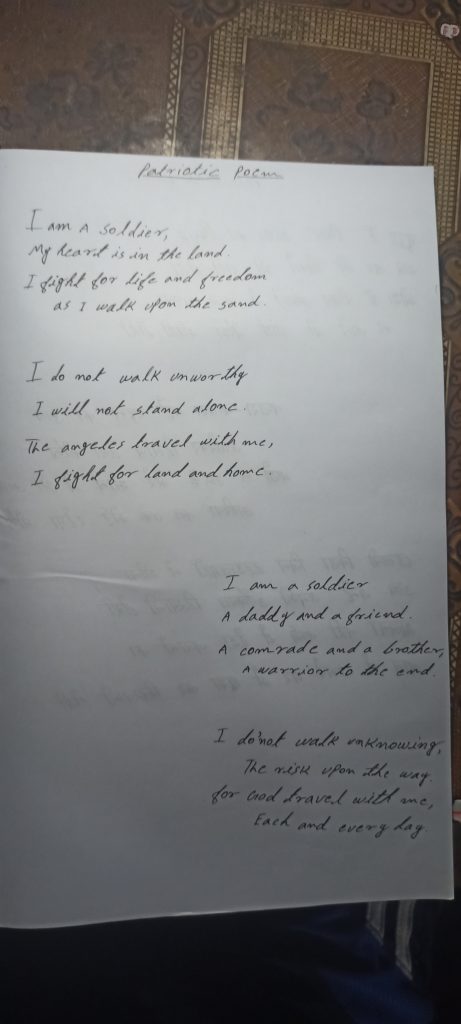 Patriotic Poem
I am A soldier,
My heart is in the land.
I fight for life and freedom
as I walk upon the sand.
I do not walk unworthy
I will not stand alone.
The angeles travel with me,
I fight for land and home.
I am a soldier
A daddy and a friend.
A comrade and a brother,
A warrior to the end.
I do'not walk unknowing,
The risk upon the way.
for God travel with me,
Each and every day.